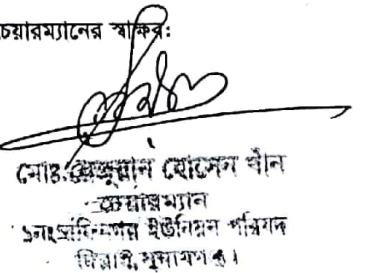 চেয়ারম্যানের স্বাক্ষর:
মোঃ হোসেন খাঁন
চেয়ারম্যান
১নং ইউনিয়ন পরিষদ
দিরাই, সুনামগঞ্জ।